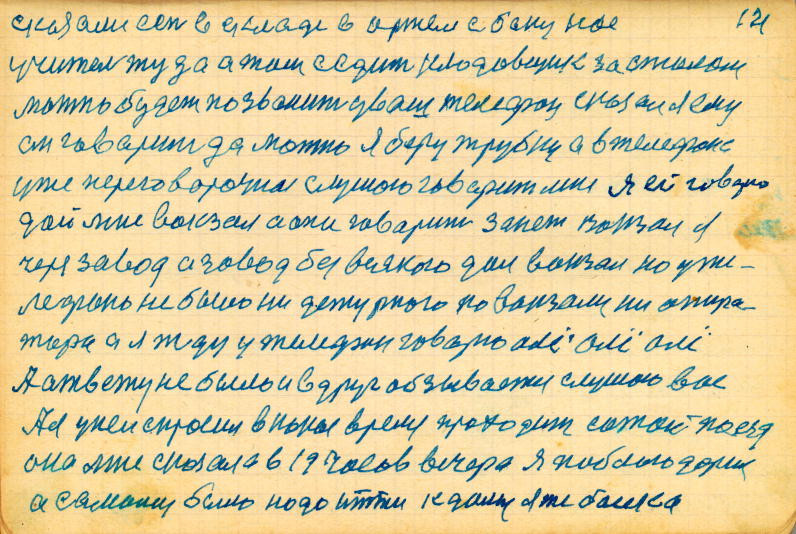 сказали сеп в складе в артел с боку нас 121
учител туда а там седит кладовщик за столом
можно будет позвонит уваш телефон сказал я ему
он говарит да можно я беру трубку а в телефоне
уже переговорочная слушаю говарит мни я ей говарю
дай мне вокзал а они говарит занет вокзал я
черя завод а завод без всякого дал вокзал но у те-
лефоно не было ни дежурного по вокзалу ни опира-
тора а я жду у телефон говарю алё алё алё
А атвету не было и вдруг абзываетси слушаю вас
Я у неи спросил в какое время проходит поезд
она мне сказала в 19 часов вечера я поблагодарил
а самому было надо итти к дому я же